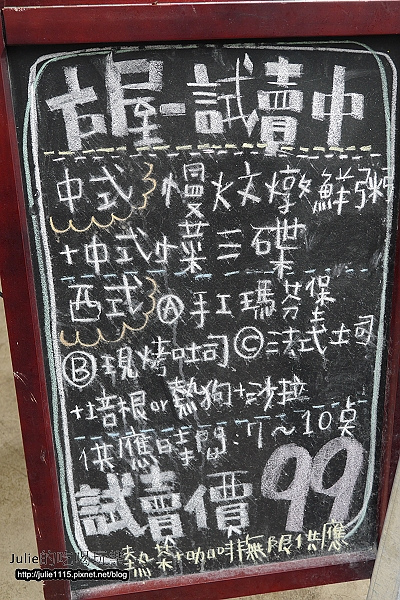 古屋-試賣中
中式 慢炆燉鮮粥
+中式小菜三碟
西式 Ⓐ手工瑪芬堡
Ⓑ現烤吐司 Ⓒ法式土司
+培根or熱狗+沙拉
供應時間:7~10桌
試賣價 99
熱茶+咖啡無限供應
Julie的
http://julie1115.pixnet.net/blog